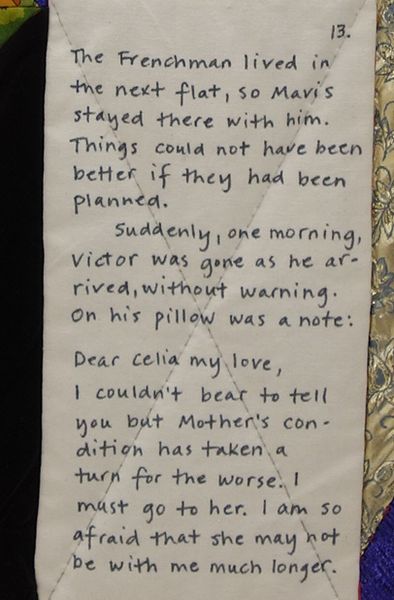 13.
The Frenchman lived in
the next flat, so Mavis
stayed there with him.
Things could not have been
better if they had been
planned.
Suddenly, one morning,
Victor was gone as he ar-
rived, without warning.
On his pillow was a note:
Dear Celia my love,
I couldn't bear to tell
you but Mother's con-
dition has taken a
turn for the worse. I
must go to her. I am so
afraid that she may not
be with me much longer.